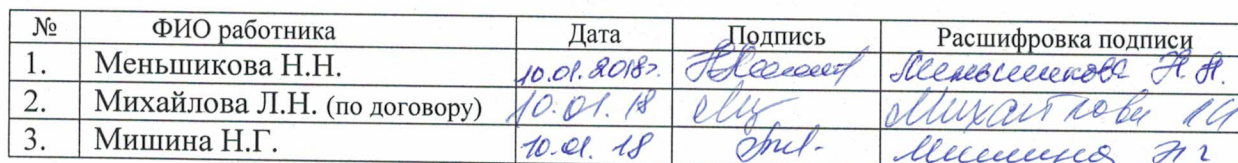 № ФИО работника Дата Подпись Расшифровка подписи
1. Меньшикова Н.Н. 10.01.2018г. Меньшикова Н.Н.
2. Михайлова Л.Н. (по договору) 10.01.18 Михайлова ЛН
3. Мишина Н.Г. 10.01.18 Мишина НГ